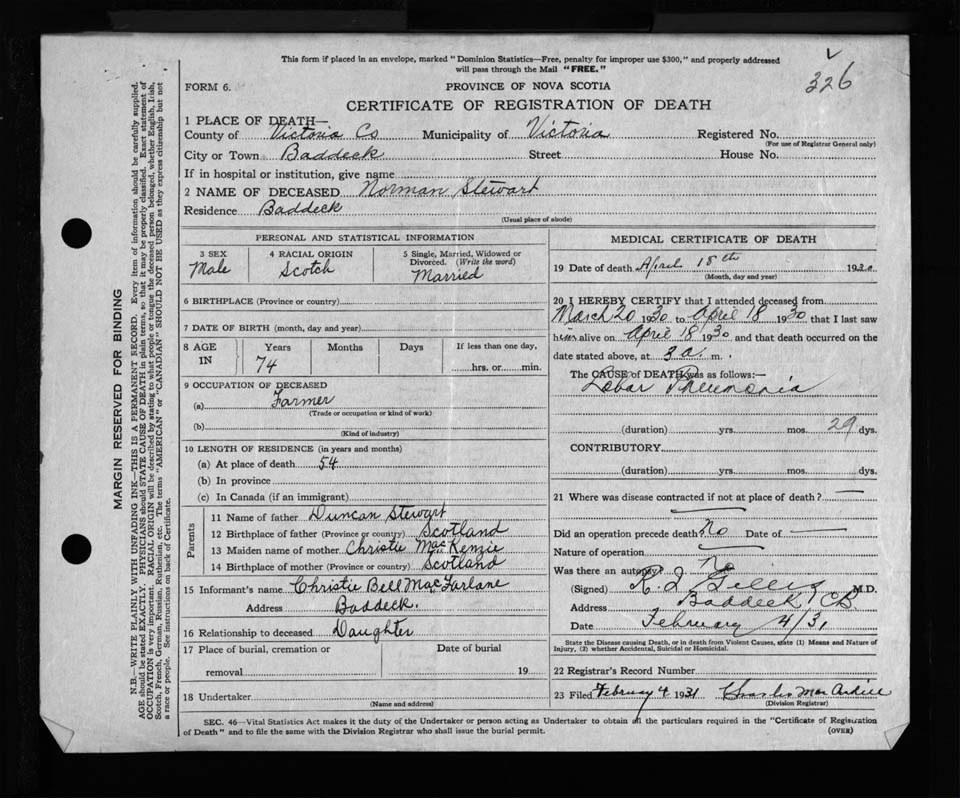 This form if placed in an envelope, marked "Dominion Statistics—Free, penalty for improper use $300," and properly addressed
will pass through the Mail "FREE."
326
FORM 6.
PROVINCE OF NOVA SCOTIA
CERTIFICATE OF REGISTRATION OF DEATH
1 PLACE OF DEATH—
County of Victoria Co Municipality of Victoria Registered No.
(For use of Registrar General only)
City or Town Baddeck Street House No.
If in hospital or institution, give name
2 NAME OF DECEASED Norman Stewart
Residence Baddeck
(Usual place of abode)
PERSONAL AND STATISTICAL INFORMATION
3 SEX
Male
4 RACIAL ORIGIN
Scotch
5 Single, Married, Widowed or
Divorced. (Write the word)
Married
6 BIRTHPLACE (Province or country)
7 DATE OF BIRTH (month, day and year)
8 AGE
IN
Years
74
Months
Days
If less than one day,
hrs. or min.
9 OCCUPATION OF DECEASED
(a) Farmer
(Trade or occupation or kind of work)
(b)
(Kind of industry)
10 LENGTH OF RESIDENCE (in years and months)
(a) At place of death 54
(b) In province
(c) In Canada (if an immigrant)
Parents
11 Name of father Duncan Stewart
12 Birthplace of father (Province or country) Scotland
13 Maiden name of mother Christie MacKenzie
14 Birthplace of mother (Province or country) Scotland
15 Informant's name Christie Bell MacFarlane
Address Baddeck.
16 Relationship to deceased Daughter
17 Place of burial, cremation or
removal
Date of burial
19
18 Undertaker
(Name and address)
MEDICAL CERTIFICATE OF DEATH
19 Date of death April 18th 19
(Month, day and year)
20 I HEREBY CERTIFY that I attended deceased from
March 20 1930 to April 18 1930 that I last saw
him alive on April 18 1930 and that death occurred on the
date stated above, at 3 a. m.
The CAUSE of DEATH was as follows:—
Lobar Pneumonia
(duration) yrs. mos. 29 dys.
CONTRIBUTORY
(duration) yrs. mos. dys.
21 Where was disease contracted if not at place of death? —
Did an operation precede death? No Date of —
Nature of operation —
Was there an autopsy? No
(Signed) Gillis M.D.
Address Baddeck, CB
Date February 4/31
State the Disease causing Death, or in death from Violent Causes, state (1) Means and Nature of
Injury, (2) whether Accidental, Suicidal or Homicidal.
22 Registrar's Record Number
23 Filed February 4 1931 Charles
(Division Registrar)
SEC. 46—Vital Statistics Act makes it the duty of the Undertaker or person acting as Undertaker to obtain all the particulars required in the "Certificate of Registration
of Death" and to file the same with the Division Registrar who shall issue the burial permit.
(OVER)
MARGIN RESERVED FOR BINDING
N.B.—WRITE PLAINLY WITH UNFADING INK—THIS IS A PERMANENT RECORD. Every item of information should be carefully supplied.
AGE should be stated EXACTLY. PHYSICIANS should STATE CAUSE OF DEATH in plain terms, so that it may be properly classified. Exact statement of
OCCUPATION is very important. RACIAL ORIGIN will be described by stating to what people or tongue the deceased person belonged, whether English, Irish,
Scotch, French, German, Russian, Ruthenian, etc. The terms "AMERICAN" or "CANADIAN" SHOULD NOT BE USED as they express citizenship but not
a race or people. See instructions on back of Certificate.